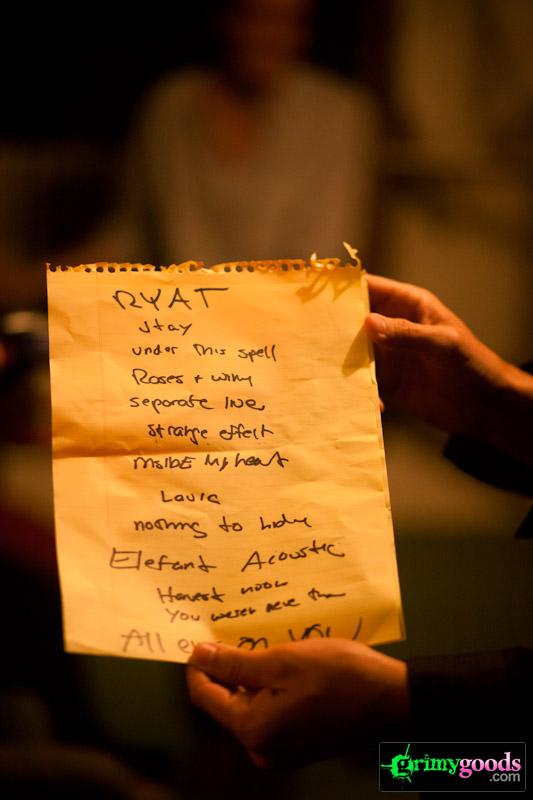 RYAT
Stay
under this spell
Roses + wine
separate live
strange effect
inside my heart
Laura
nothing to hide
Elefant Acoustic
Harvest moon
You were never there
All eyes on you
grimygoods
.com